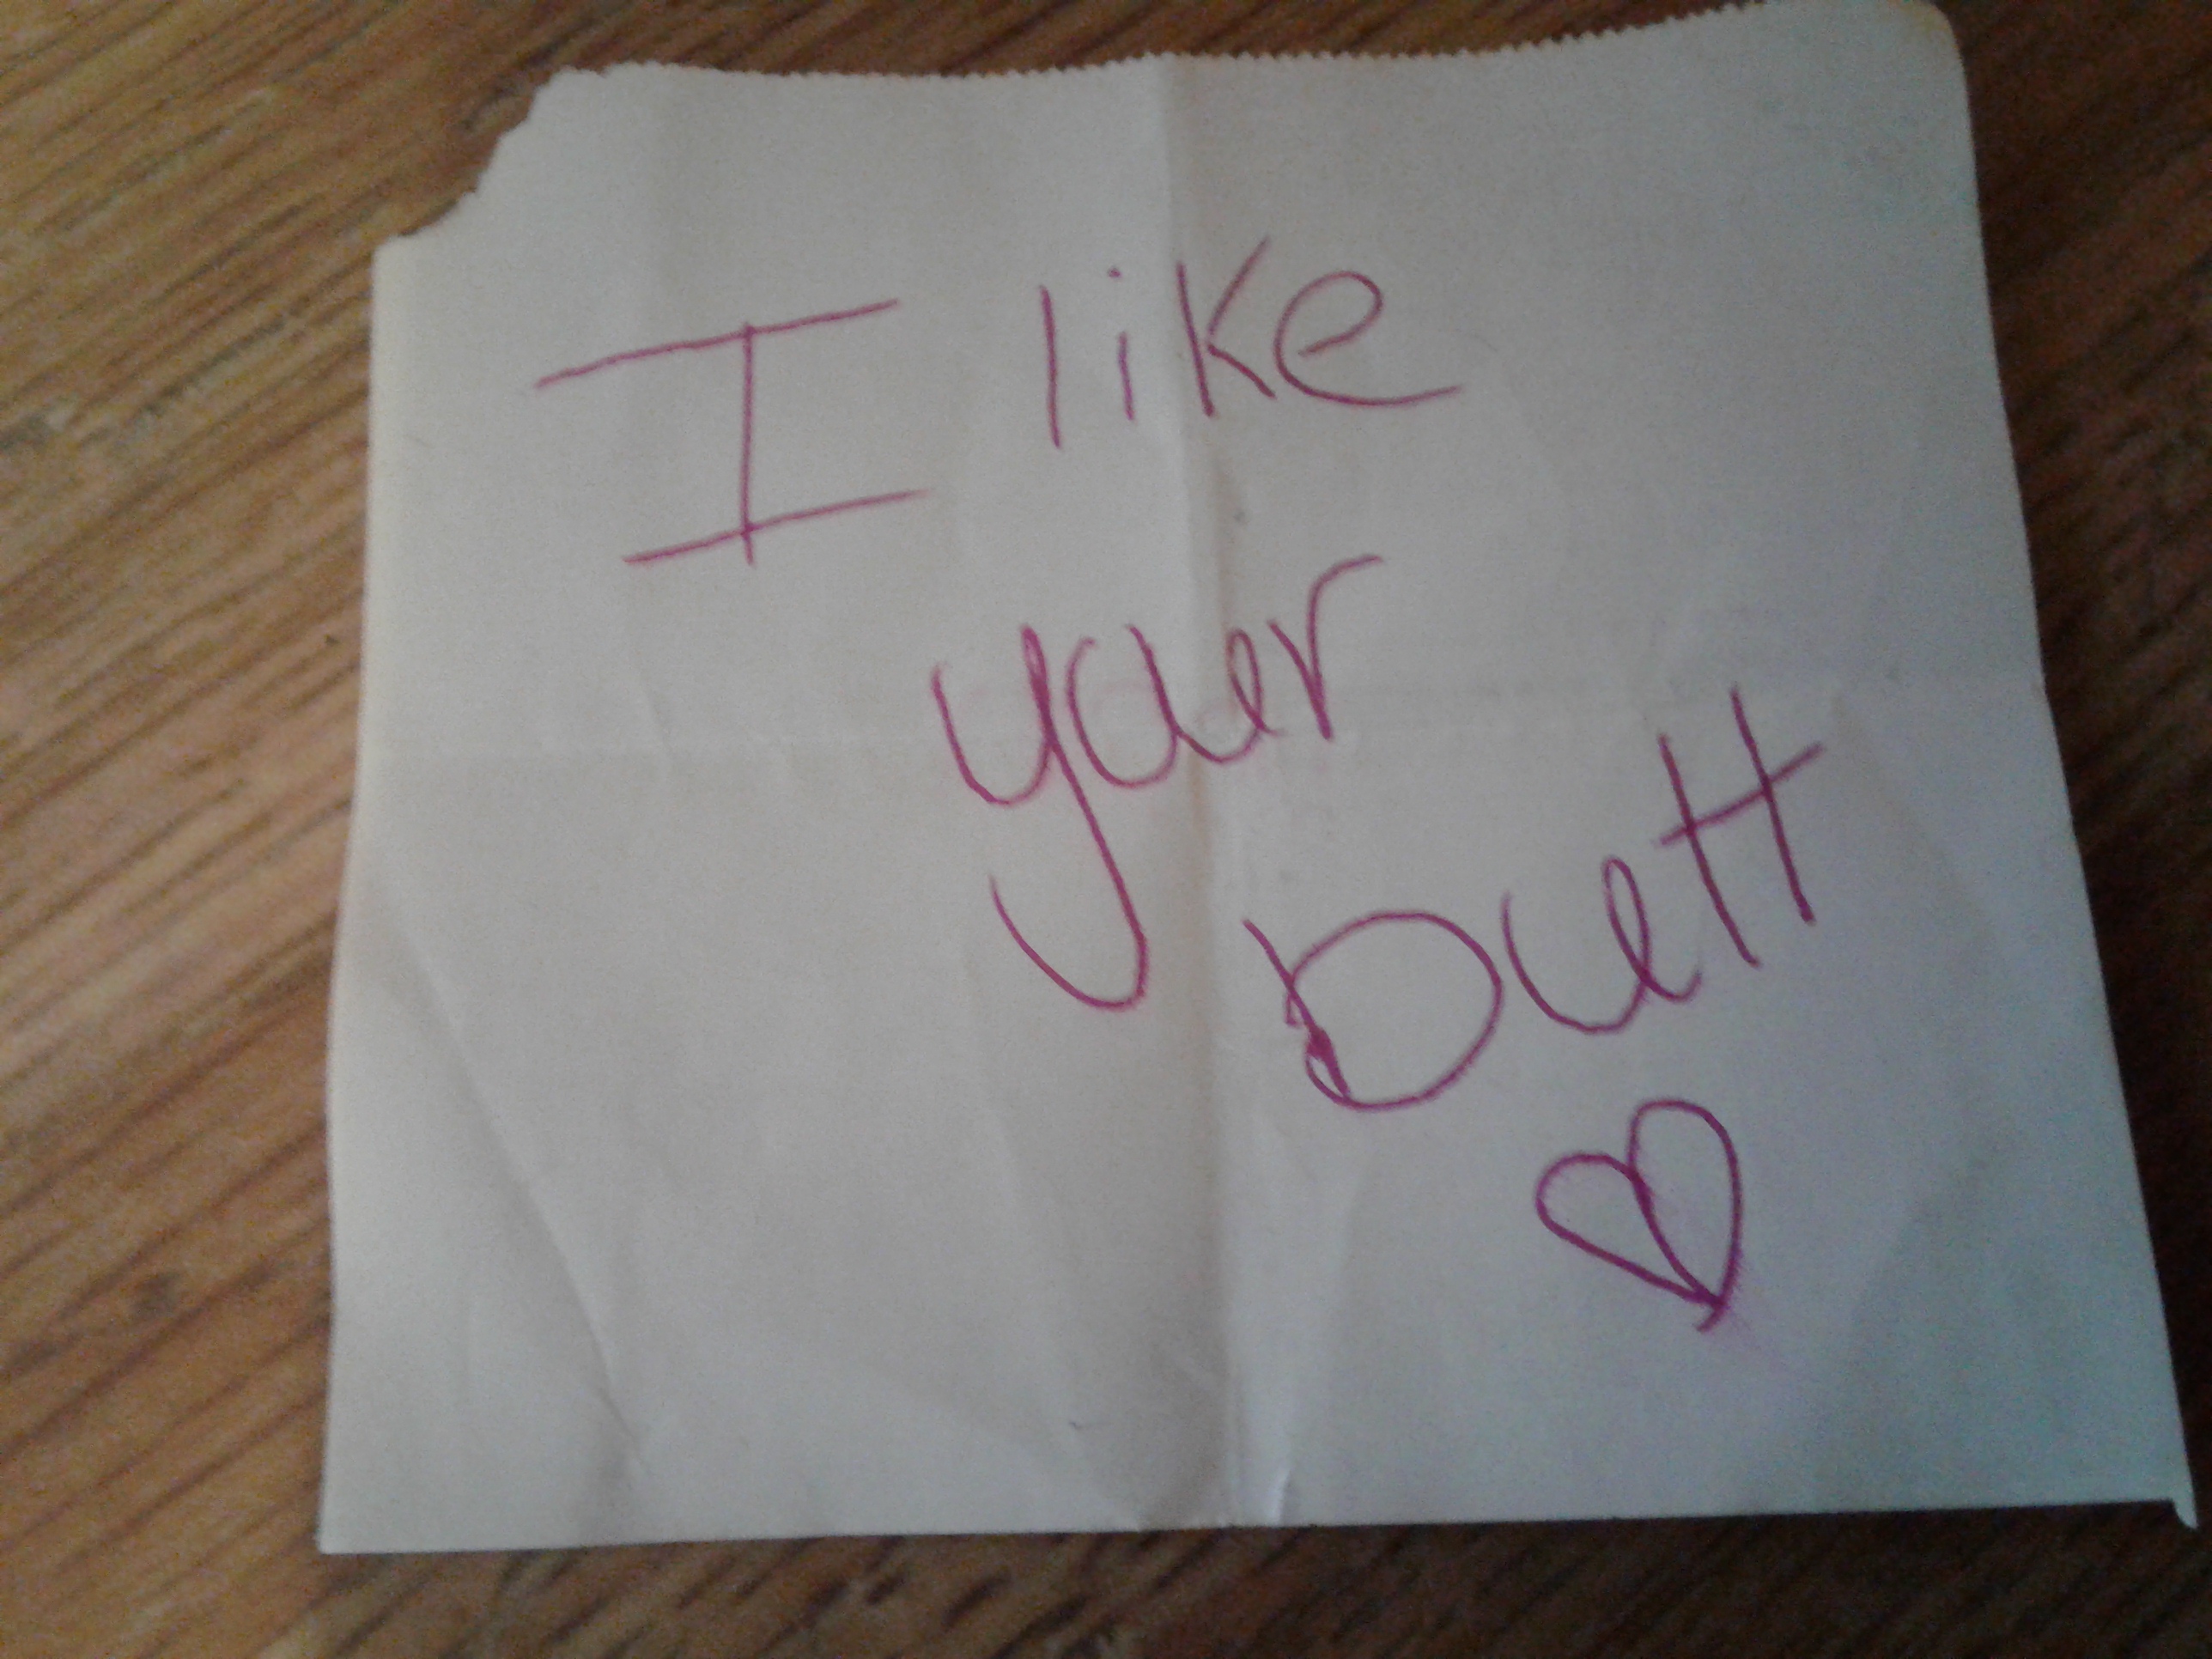 I like
your
butt